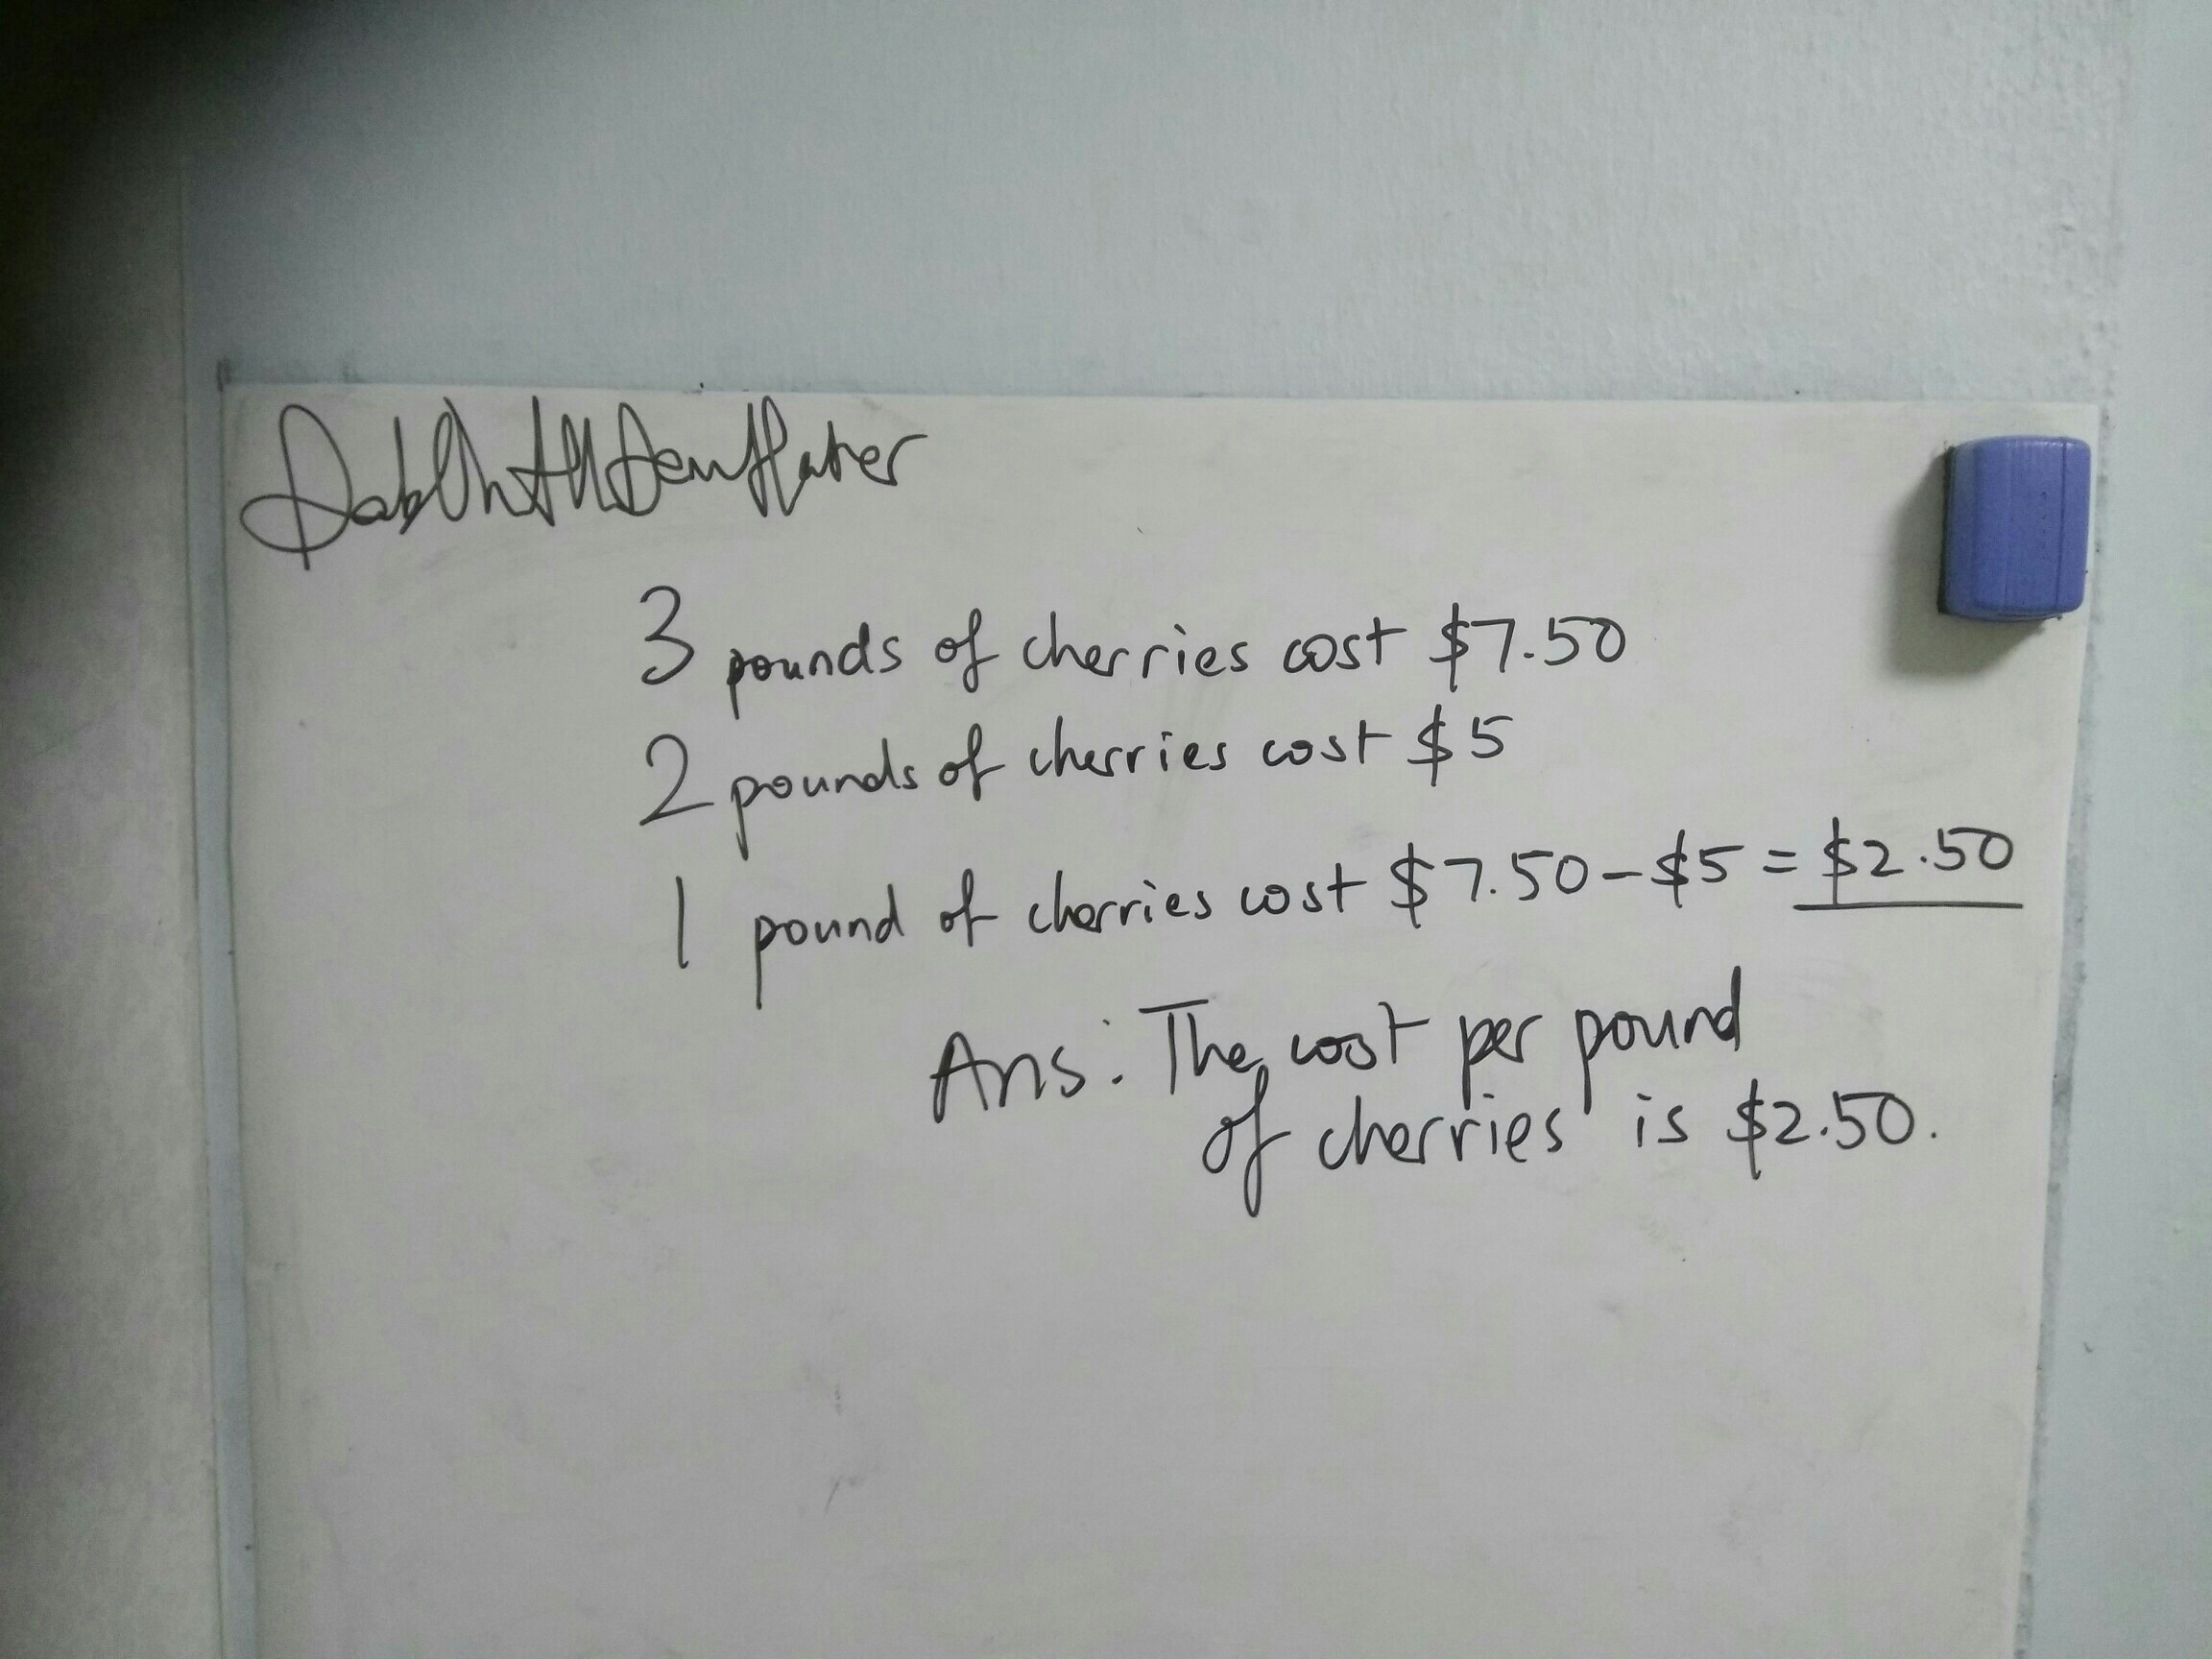 DabOnAllDemHater
3 pounds of cherries cost $7.50
2 pounds of cherries cost $5
1 pound of cherries cost $7.50-$5=$2.50
Ans: The cost per pound
of cherries is $2.50.